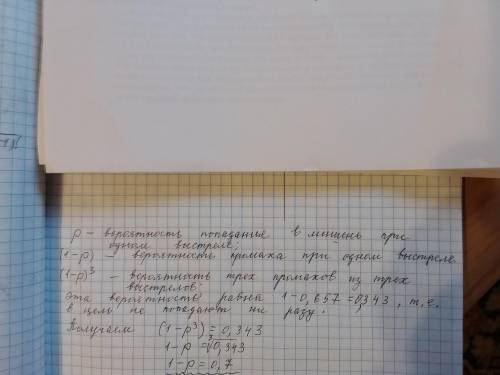 p – вероятность попадания в мишень при
одном выстреле;
(1-p) – вероятность промаха при одном выстреле
(1-p)³ – вероятность трех промахов из трех
выстрелов.
Эта вероятность равна 1-0,657=0,343, т.е.
в цель не попадают ни разу.
Получаем (1-p³) = 0,343
1-p = ∛0,343
1-p = 0,7